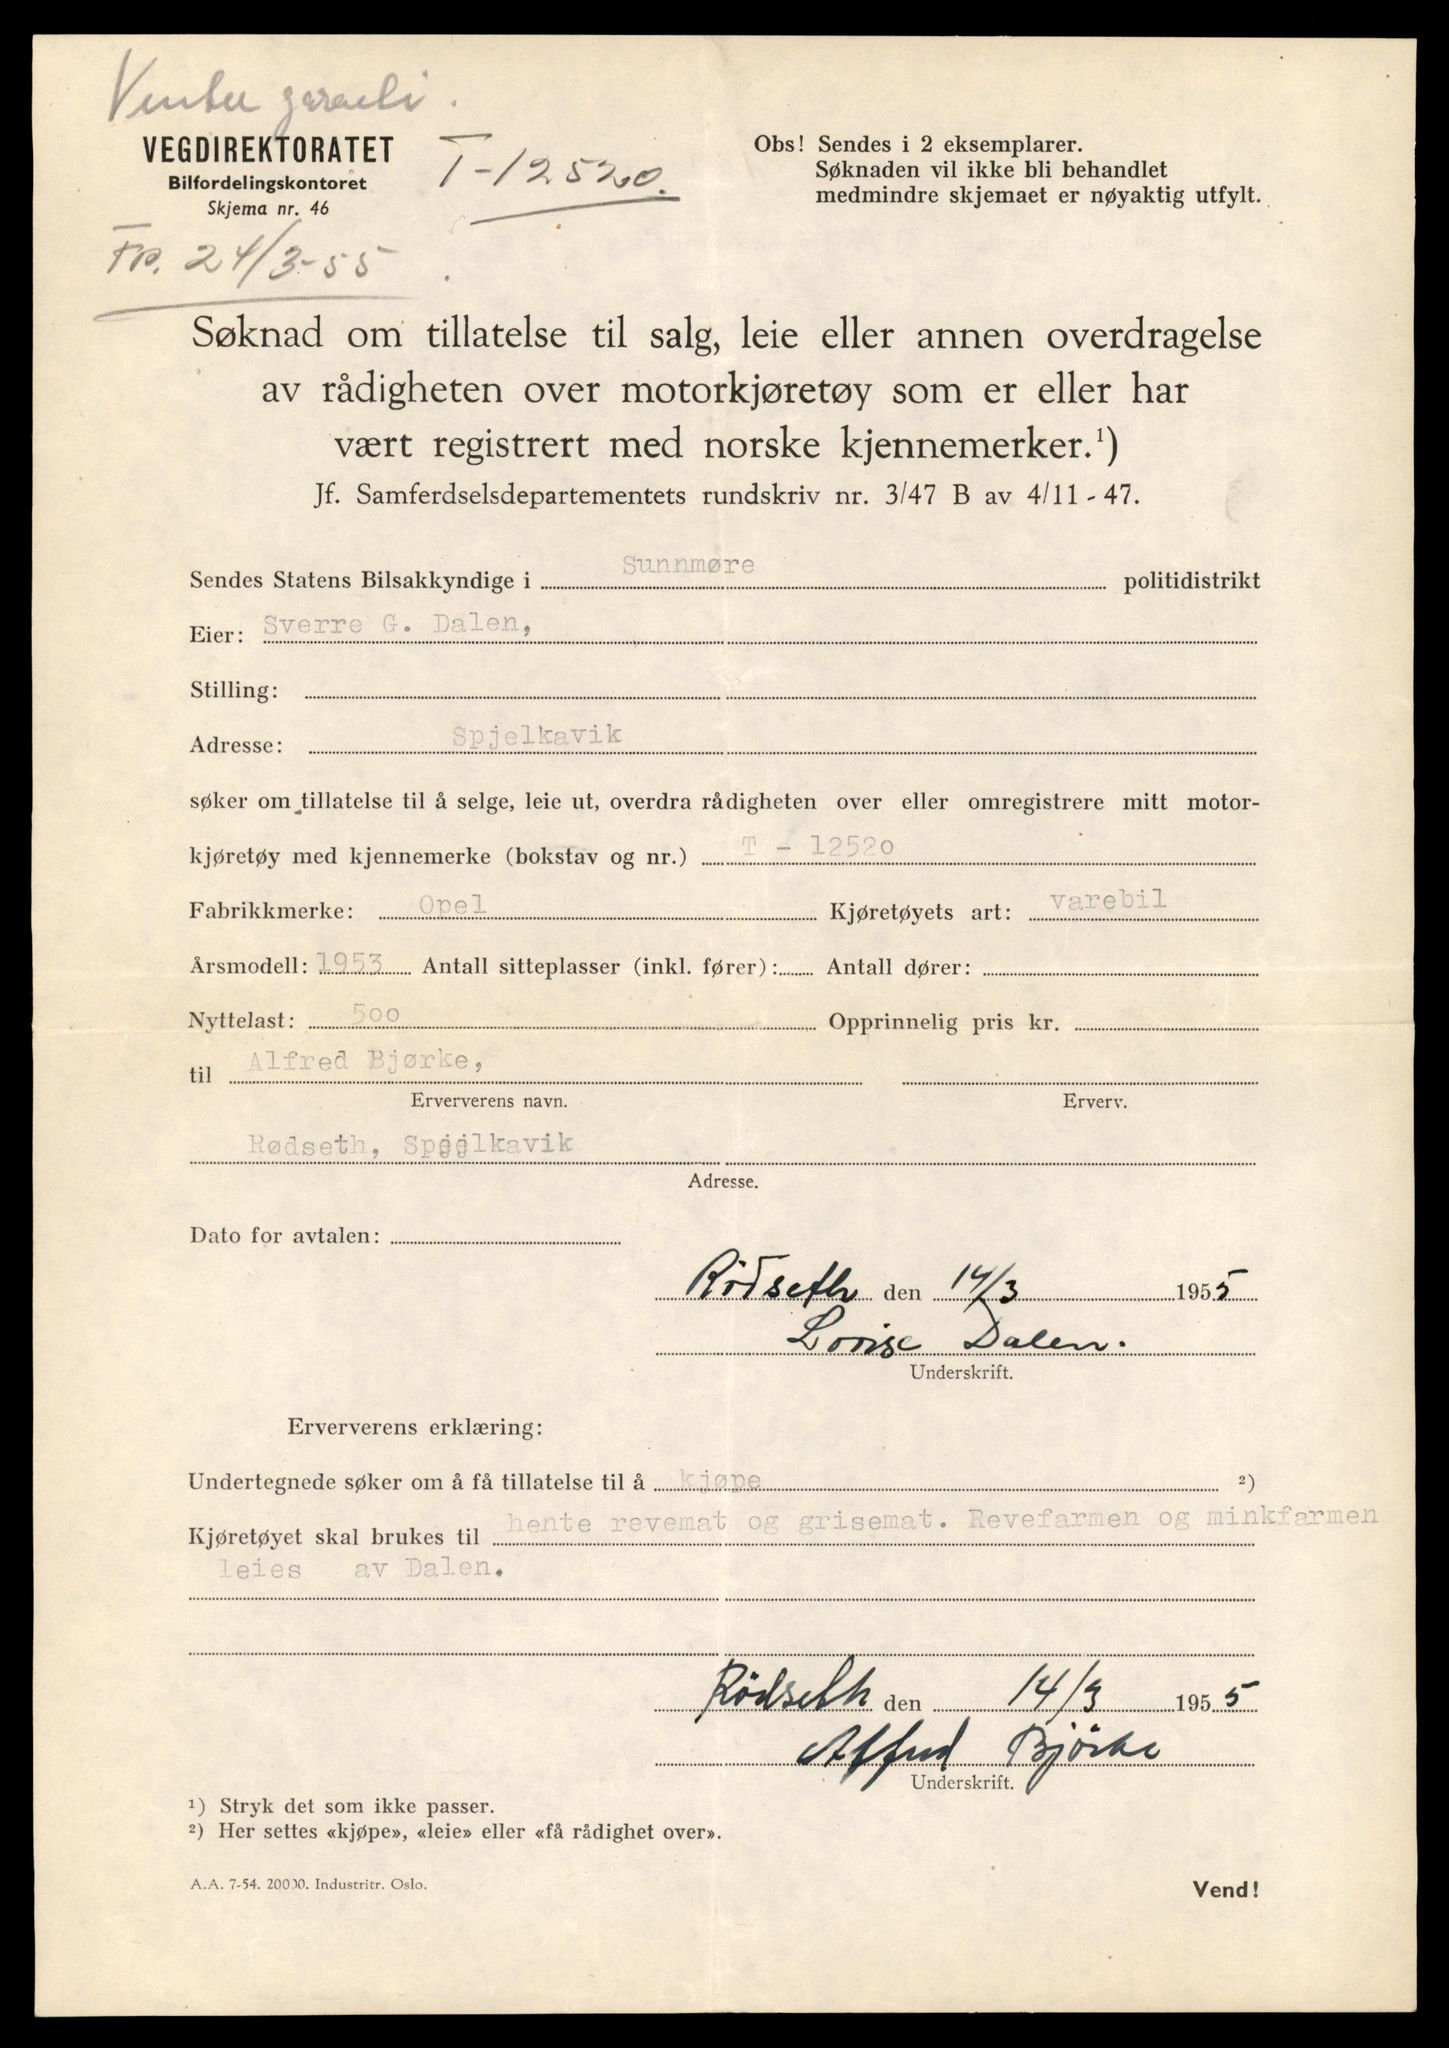 VEGDIREKTORATET
Bilfordelingskontoret
Skjema nr. 46
T-12520.
Fp. 24/3-55
Obs! Sendes i 2 eksemplarer.
Søknaden vil ikke bli behandlet
medmindre skjemaet er nøyaktig utfylt.
Søknad om tillatelse til salg, leie eller annen overdragelse
av rådigheten over motorkjøretøy som er eller har
vært registrert med norske kjennemerker.¹)
Jf. Samferdselsdepartementets rundskriv nr. 3/47 B av 4/11 - 47.
Sendes Statens Bilsakkyndige i Sunnmøre politidistrikt
Eier: Sverre G. Dalen,
Stilling:
Adresse: Spjelkavik
søker om tillatelse til å selge, leie ut, overdra rådigheten over eller omregistrere mitt motor-
kjøretøy med kjennemerke (bokstav og nr.) T - 12520
Fabrikkmerke: Opel Kjøretøyets art: varebil
Årsmodell: 1953 Antall sitteplasser (inkl. fører): Antall dører:
Nyttelast: 500 Opprinnelig pris kr.
til Alfred Bjørke,
Erververens navn. Erverv.
Rødseth, Spjelkavik
Adresse.
Dato for avtalen:
Rödseth den 14/3 1955
Lovise Dalen.
Underskrift.
Erververens erklæring:
Undertegnede søker om å få tillatelse til å kjøpe ²)
Kjøretøyet skal brukes til hente revemat og grisemat. Revefarmen og minkfarmen
leies av Dalen.
Rödseth den 14/3 1955
Alfred Bjørke
Underskrift.
¹) Stryk det som ikke passer.
²) Her settes «kjøpe», «leie» eller «få rådighet over».
A.A. 7-54. 20000. Industritr. Oslo.
Vend!